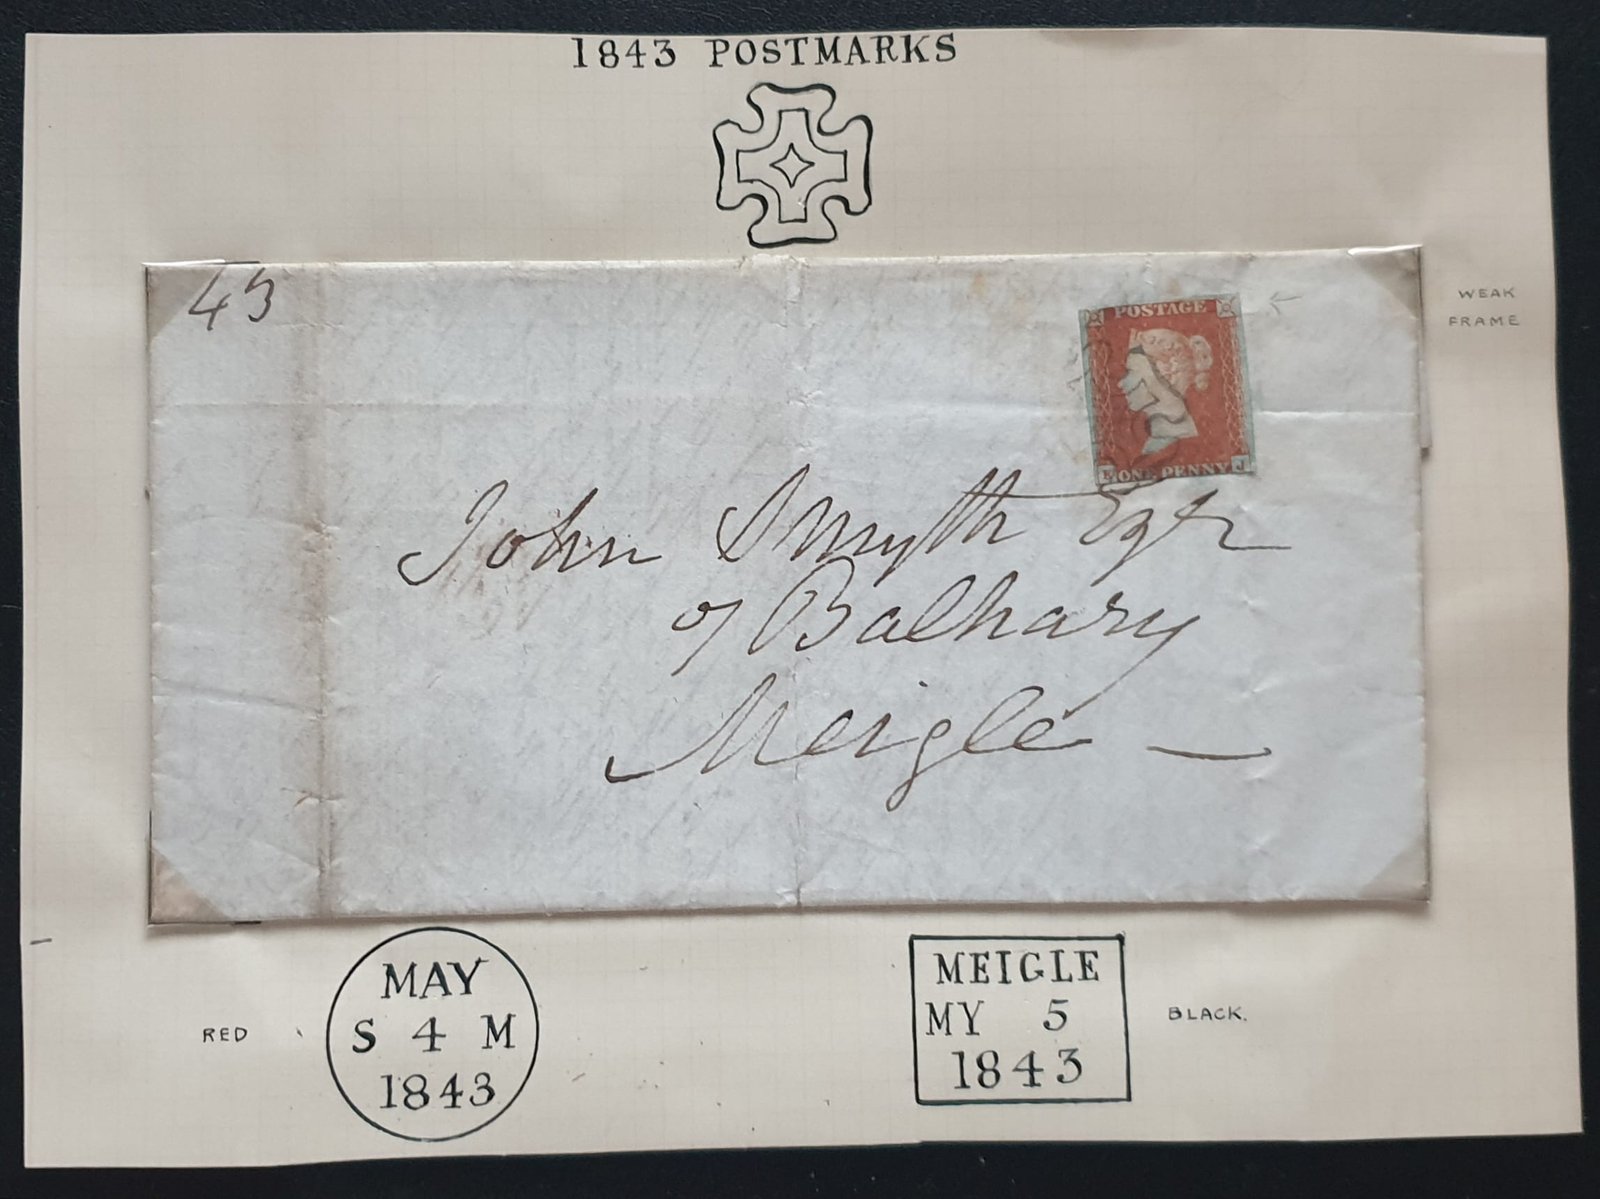 1843 POSTMARKS
43
WEAK
FRAME
POSTAGE
ONE PENNY J
John Smyth Esqr
of Balhary
Meigle
MAY
S 4 M
1843
RED
MEIGLE
MY 5
1843
BLACK.